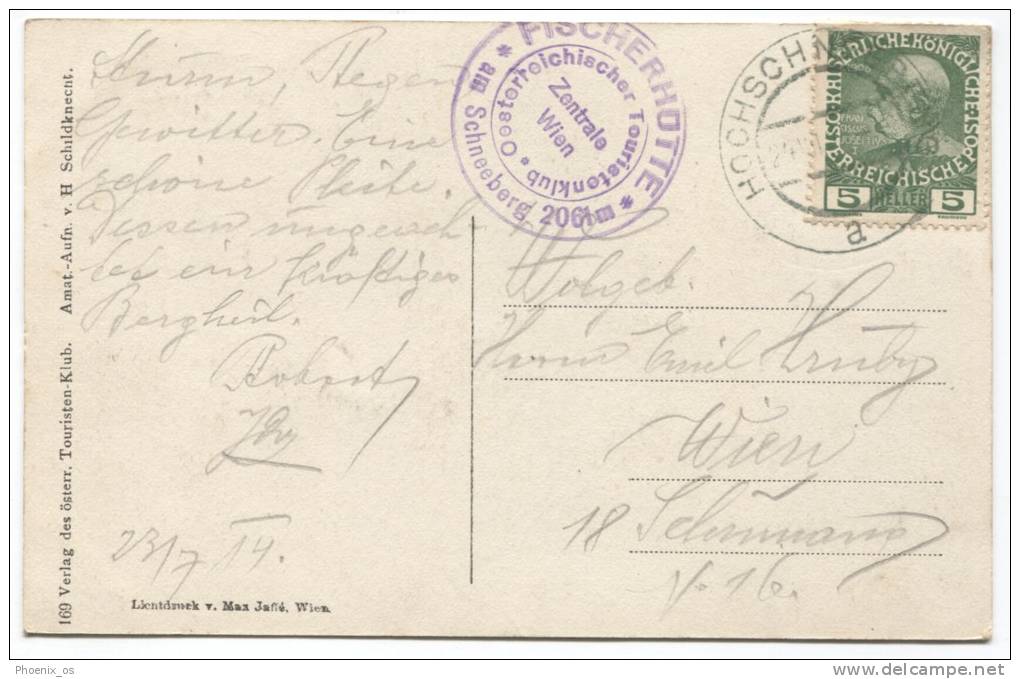 Sturm, Regen
Gewitter. Eine
schöne Pleite.
Dessen ungeach-
tet ein kräftiges
Bergheil.
Robert
23/7 14.
169 Verlag des österr. Touristen-Klub. Amat.-Aufn. v. H Schildknecht.
Lichtdruck v. Max Jaffé, Wien.
FISCHERHÜTTE
* am Schneeberg 2061 m *
Oesterreichischer Touristenklub *
Zentrale
Wien
HOCHSCHN
a
KAISERLICHE KÖNIGLICHE
ÖSTERREICHISCHE POST
5 HELLER 5
Wolgeb.
Herrn Emil Hruby
Wien
18
16.
Phoenix_os
www.delcampe.net